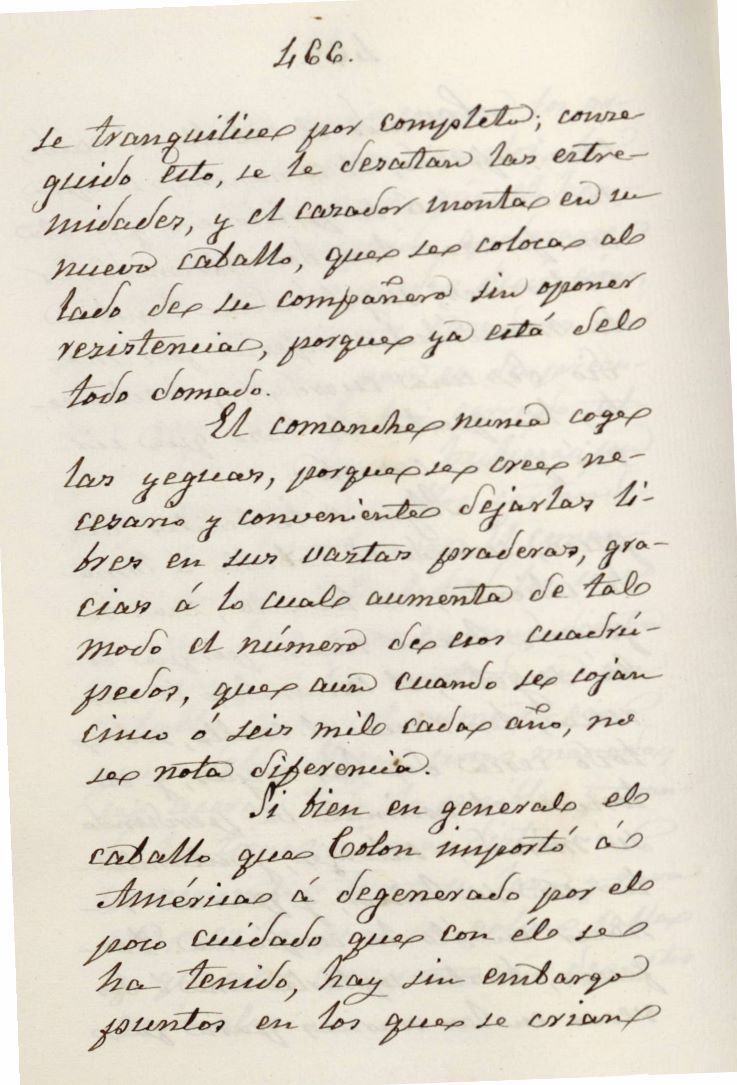 466.
se tranquilice por completo; conse-
guido esto, se le desatan las estre-
midades, y el cazador monta en su
nuevo caballo, que se coloca al
lado de su compañero sin oponer
resistencia, porque ya está del
todo domado.
El comanche nunca coge
las yeguas, porque se cree ne-
cesario y conveniente dejarlas li-
bres en sus vastas praderas, gra-
cias á lo cual aumenta de tal
modo el número de esos cuadrú-
pedos, que aun cuando se cojan
cinco ó seis mil cada año, no
se nota diferencia.
Si bien en general el
caballo que Colon importó á
América á degenerado por el
poco cuidado que con él se
ha tenido, hay sin embargo
puntos en los que se crian